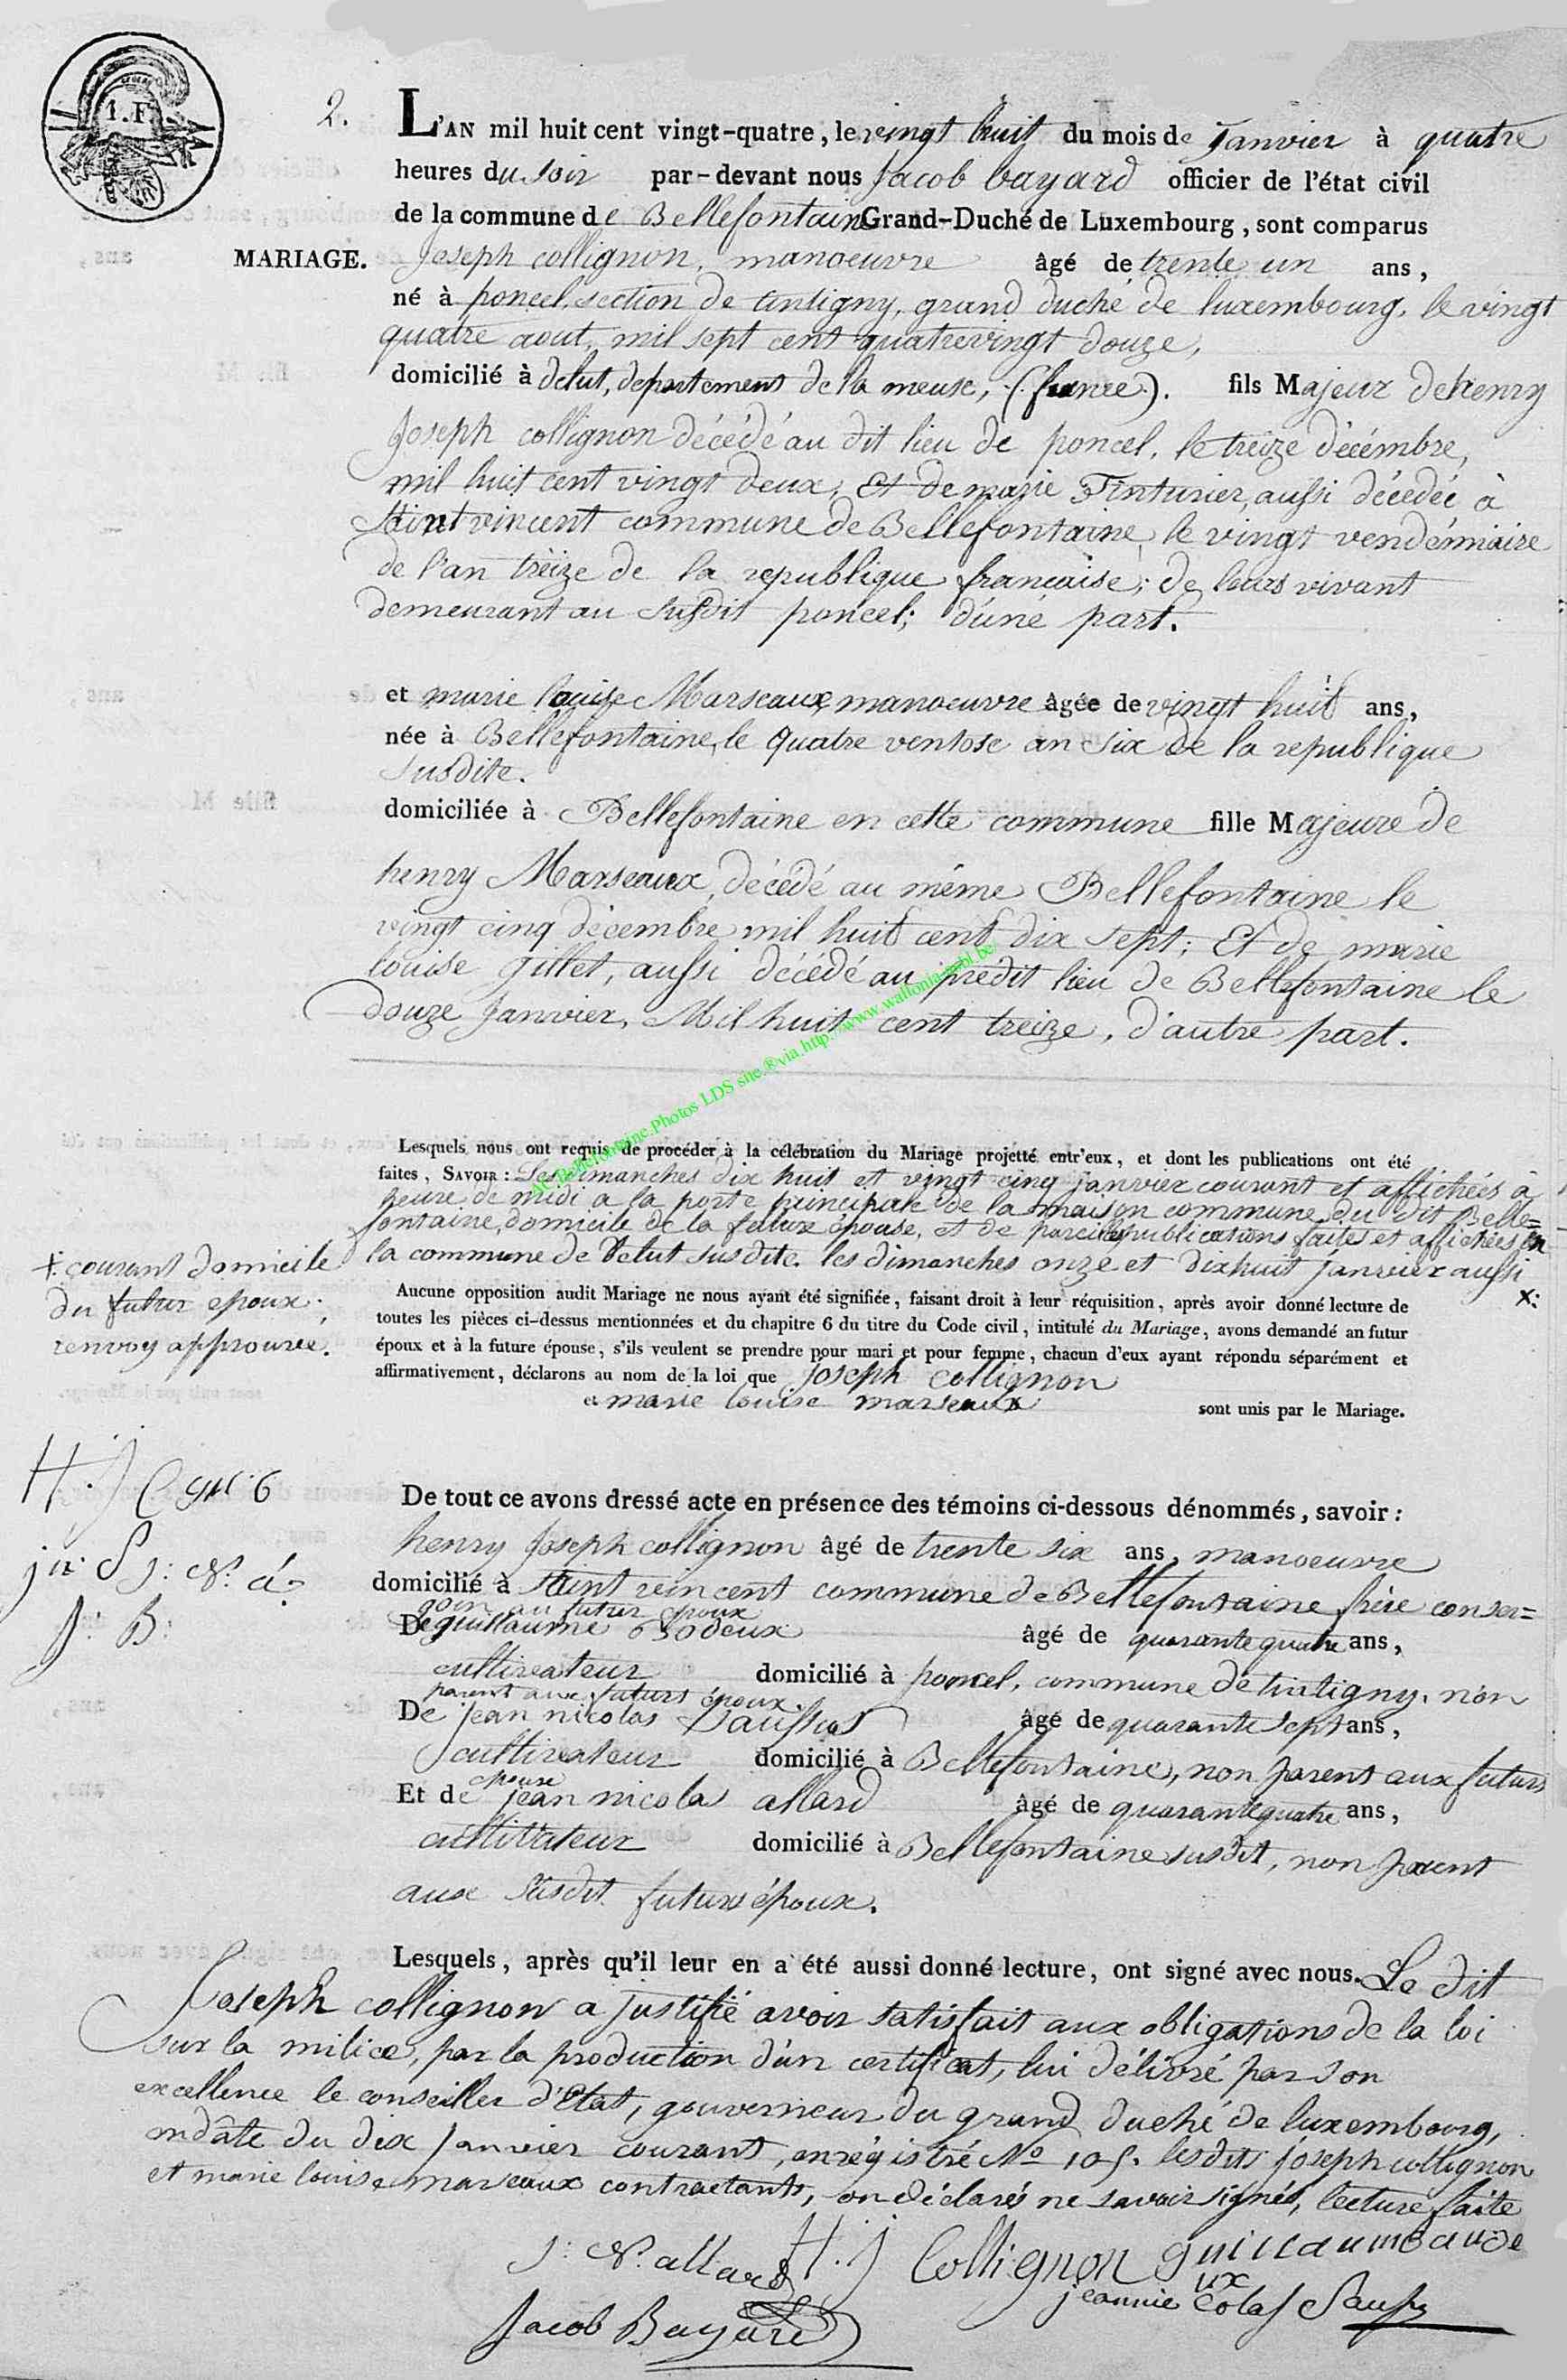 1. F.
2.
L'AN mil huit cent vingt-quatre, le vingt huit du mois de Janvier à quatre
heures du soir par-devant nous Jacob bayard officier de l'état civil
de la commune de Bellefontaine Grand-Duché de Luxembourg, sont comparus
MARIAGE.
Joseph collignon, manoeuvre âgé de trente un ans,
né à poncel, section de tintigny, grand duché de luxembourg, le vingt
quatre aout, mil sept cent quatrevingt douze,
domicilié à delut, departement de la meuse, (france). fils Majeur de henry
Joseph collignon décédé au dit lieu de poncel, le treize décémbre,
mil huit cent vingt deux; Et de marie Tinturier, aussi décedée à
Saint vincent commune de Bellefontaine, le vingt vendémiaire
de l'an treize de la republique française; de leurs vivant
demeurant au susdit poncel; d'une part.
et marie louise Marseaux, manoeuvre âgée de vingt huit ans,
née à Bellefontaine, le quatre ventose an six de la republique
susdite.
domiciliée à Bellefontaine en cette commune fille Majeure de
henry Marseaux, décédé au même Bellefontaine le
vingt cinq décembre mil huit cent dix sept; Et de marie
louise gillet, aussi décédé au prédit lieu de Bellefontaine le
douze Janvier, Mil huit cent treize, d'autre part.
Bellefontaine.Photos LDS site.®via.http://www.wallonia-asbl.be/
Lesquels nous ont requis de procéder à la célébration du Mariage projetté entr'eux, et dont les publications ont été
faites, SAVOIR: Les dimanches dix huit et vingt cinq janvier courant et affichées à
heure de midi a la porte principale de la maison commune du dit Belle=
fontaine, domicile de la future épouse, et de pareilles publications faites et affichées en
la commune de Delut susdite. les dimanches onze et dix huit janvier aussi x:
x: courant domicile
du futur epoux;
renvoy approuvée.
Aucune opposition audit Mariage ne nous ayant été signifiée, faisant droit à leur réquisition, après avoir donné lecture de
toutes les pièces ci-dessus mentionnées et du chapitre 6 du titre du Code civil, intitulé du Mariage, avons demandé an futur
époux et à la future épouse, s'ils veulent se prendre pour mari et pour femme, chacun d'eux ayant répondu séparément et
affirmativement, déclarons au nom de la loi que Joseph collignon
et marie louise marseaux sont unis par le Mariage.
H. J C
J: B:
De tout ce avons dressé acte en présence des témoins ci-dessous dénommés, savoir:
henry Joseph collignon âgé de trente six ans, manoeuvre
domicilié à saint vincent commune de Bellefontaine frère consen=
goin au futur époux
De guillaume âgé de quarante quatre ans,
cultivateur domicilié à poncel, commune de tintigny, non
parent aux futurs époux.
De jean nicolas Saussus âgé de quarante sept ans,
cultivateur domicilié à Bellefontaine, non parent aux futurs
epoux
Et de jean nicolas allard âgé de quarante quatre ans,
cultivateur domicilié à Bellefontaine susdit, non parent
aux susdit futurs époux.
Lesquels, après qu'il leur en a été aussi donné lecture, ont signé avec nous. Le dit
Joseph collignon a justifié avoir satisfait aux obligations de la loi
sur la milice, par la production d'un certificat, lui délivré par son
excellence le conseiller d'Etat, gouverneur du grand duché de luxembourg,
en dâte du dix Janvier courant, enrégistré No 105. lesdits joseph collignon
et marie louise marseaux contractants, on déclarés ne savoir signés, lecture faite
J: N. allard H. J Collignon guillaume aude
ux
jeannie colas Saus
Jacob Bayard